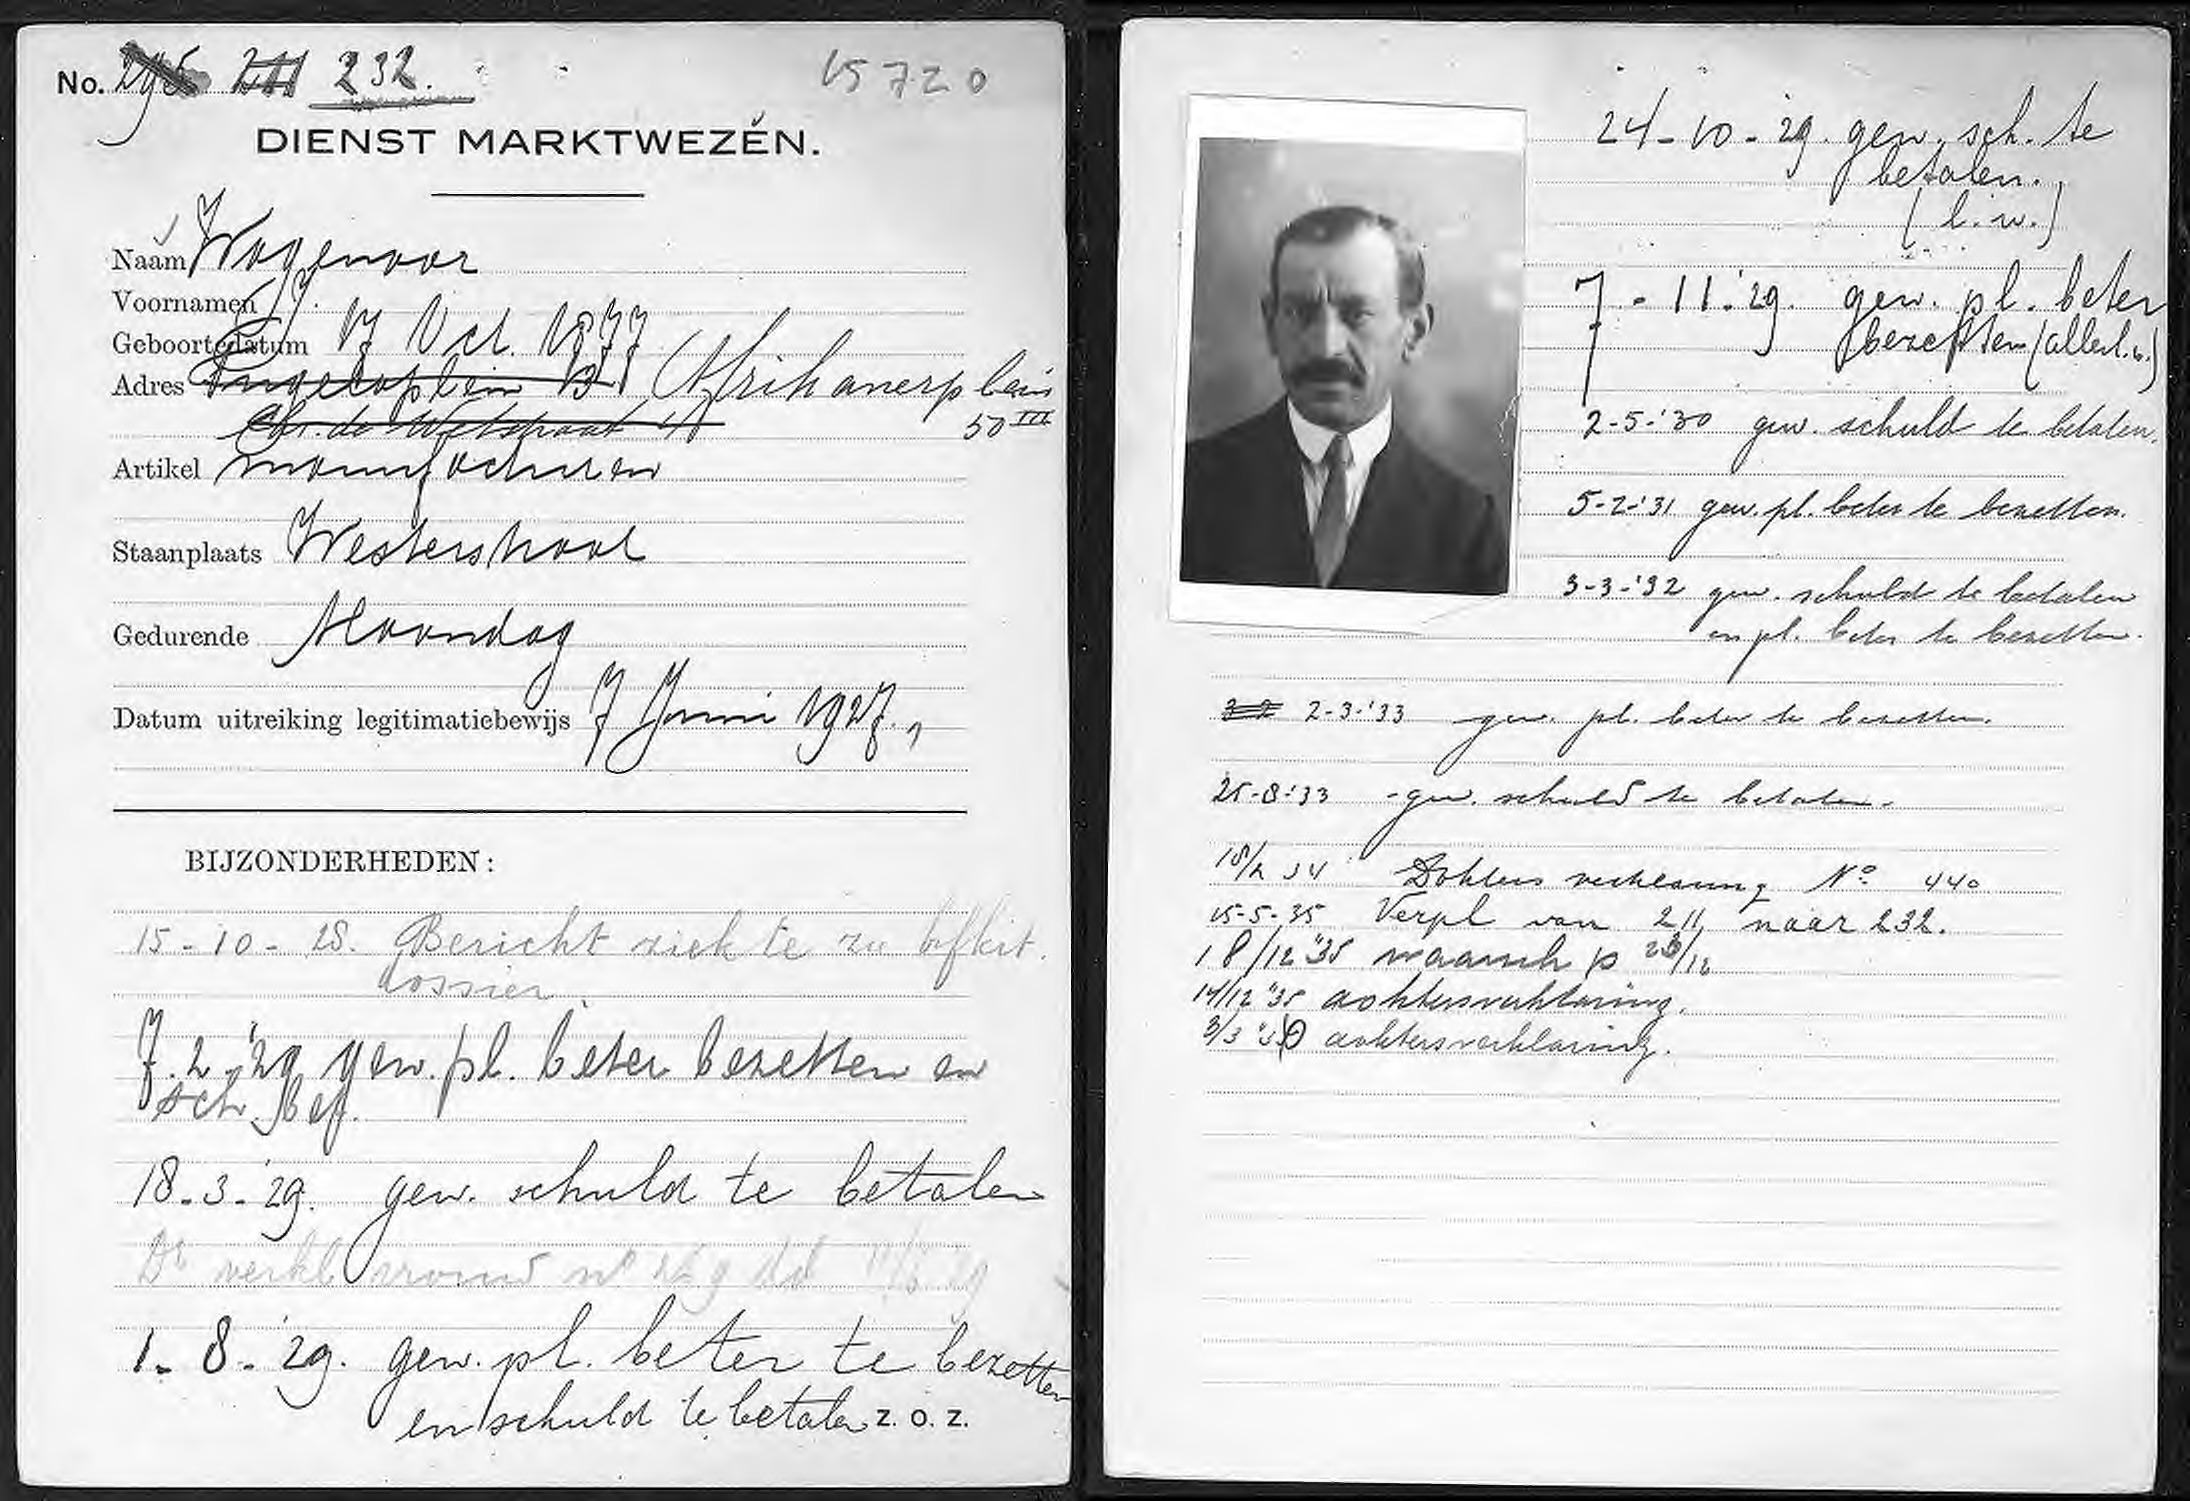 No. 295 211 232.
15720
DIENST MARKTWEZEN.
Naam Wagenaar
Voornamen
Geboortedatum 17 Oct. 1877
Adres Afrikanerplein
Chr. de Wetstraat 50 III
Artikel manufacturen
Staanplaats Westerstraat
Gedurende Maandag
Datum uitreiking legitimatiebewijs 7 Juni 1927.
BIJZONDERHEDEN:
15-10-28. Bericht ziek te zu
dossier.
7.2-'29 gew. pl. beter bezetten en
sch. bet.
18-3-'29. gew. schuld te betalen
Dr verkl vrouw no
1-8-'29. gew. pl. beter te bezetten
en schuld te betalen z. o. z.
24-10-29. gew. sch. te
betalen.
(l.w.)
7-11-'29. gew. pl. beter
bezetten (allerl.w.)
2-5-'30 gew. schuld te betalen.
5-2-'31 gew. pl. beter te bezetten.
3-3-'32 gew. schuld te betalen
en pl. beter te bezetten.
2-3-'33 gew. pl. beter te bezetten.
25-8-'33 - gew. schuld te betalen.
34 Dokters verklaring No 440
15-5-35 Verpl van 211 naar 232.
18/12 "35 waarsch p
14/12 "35 doktersverklaring.
3/3 doktersverklaring.